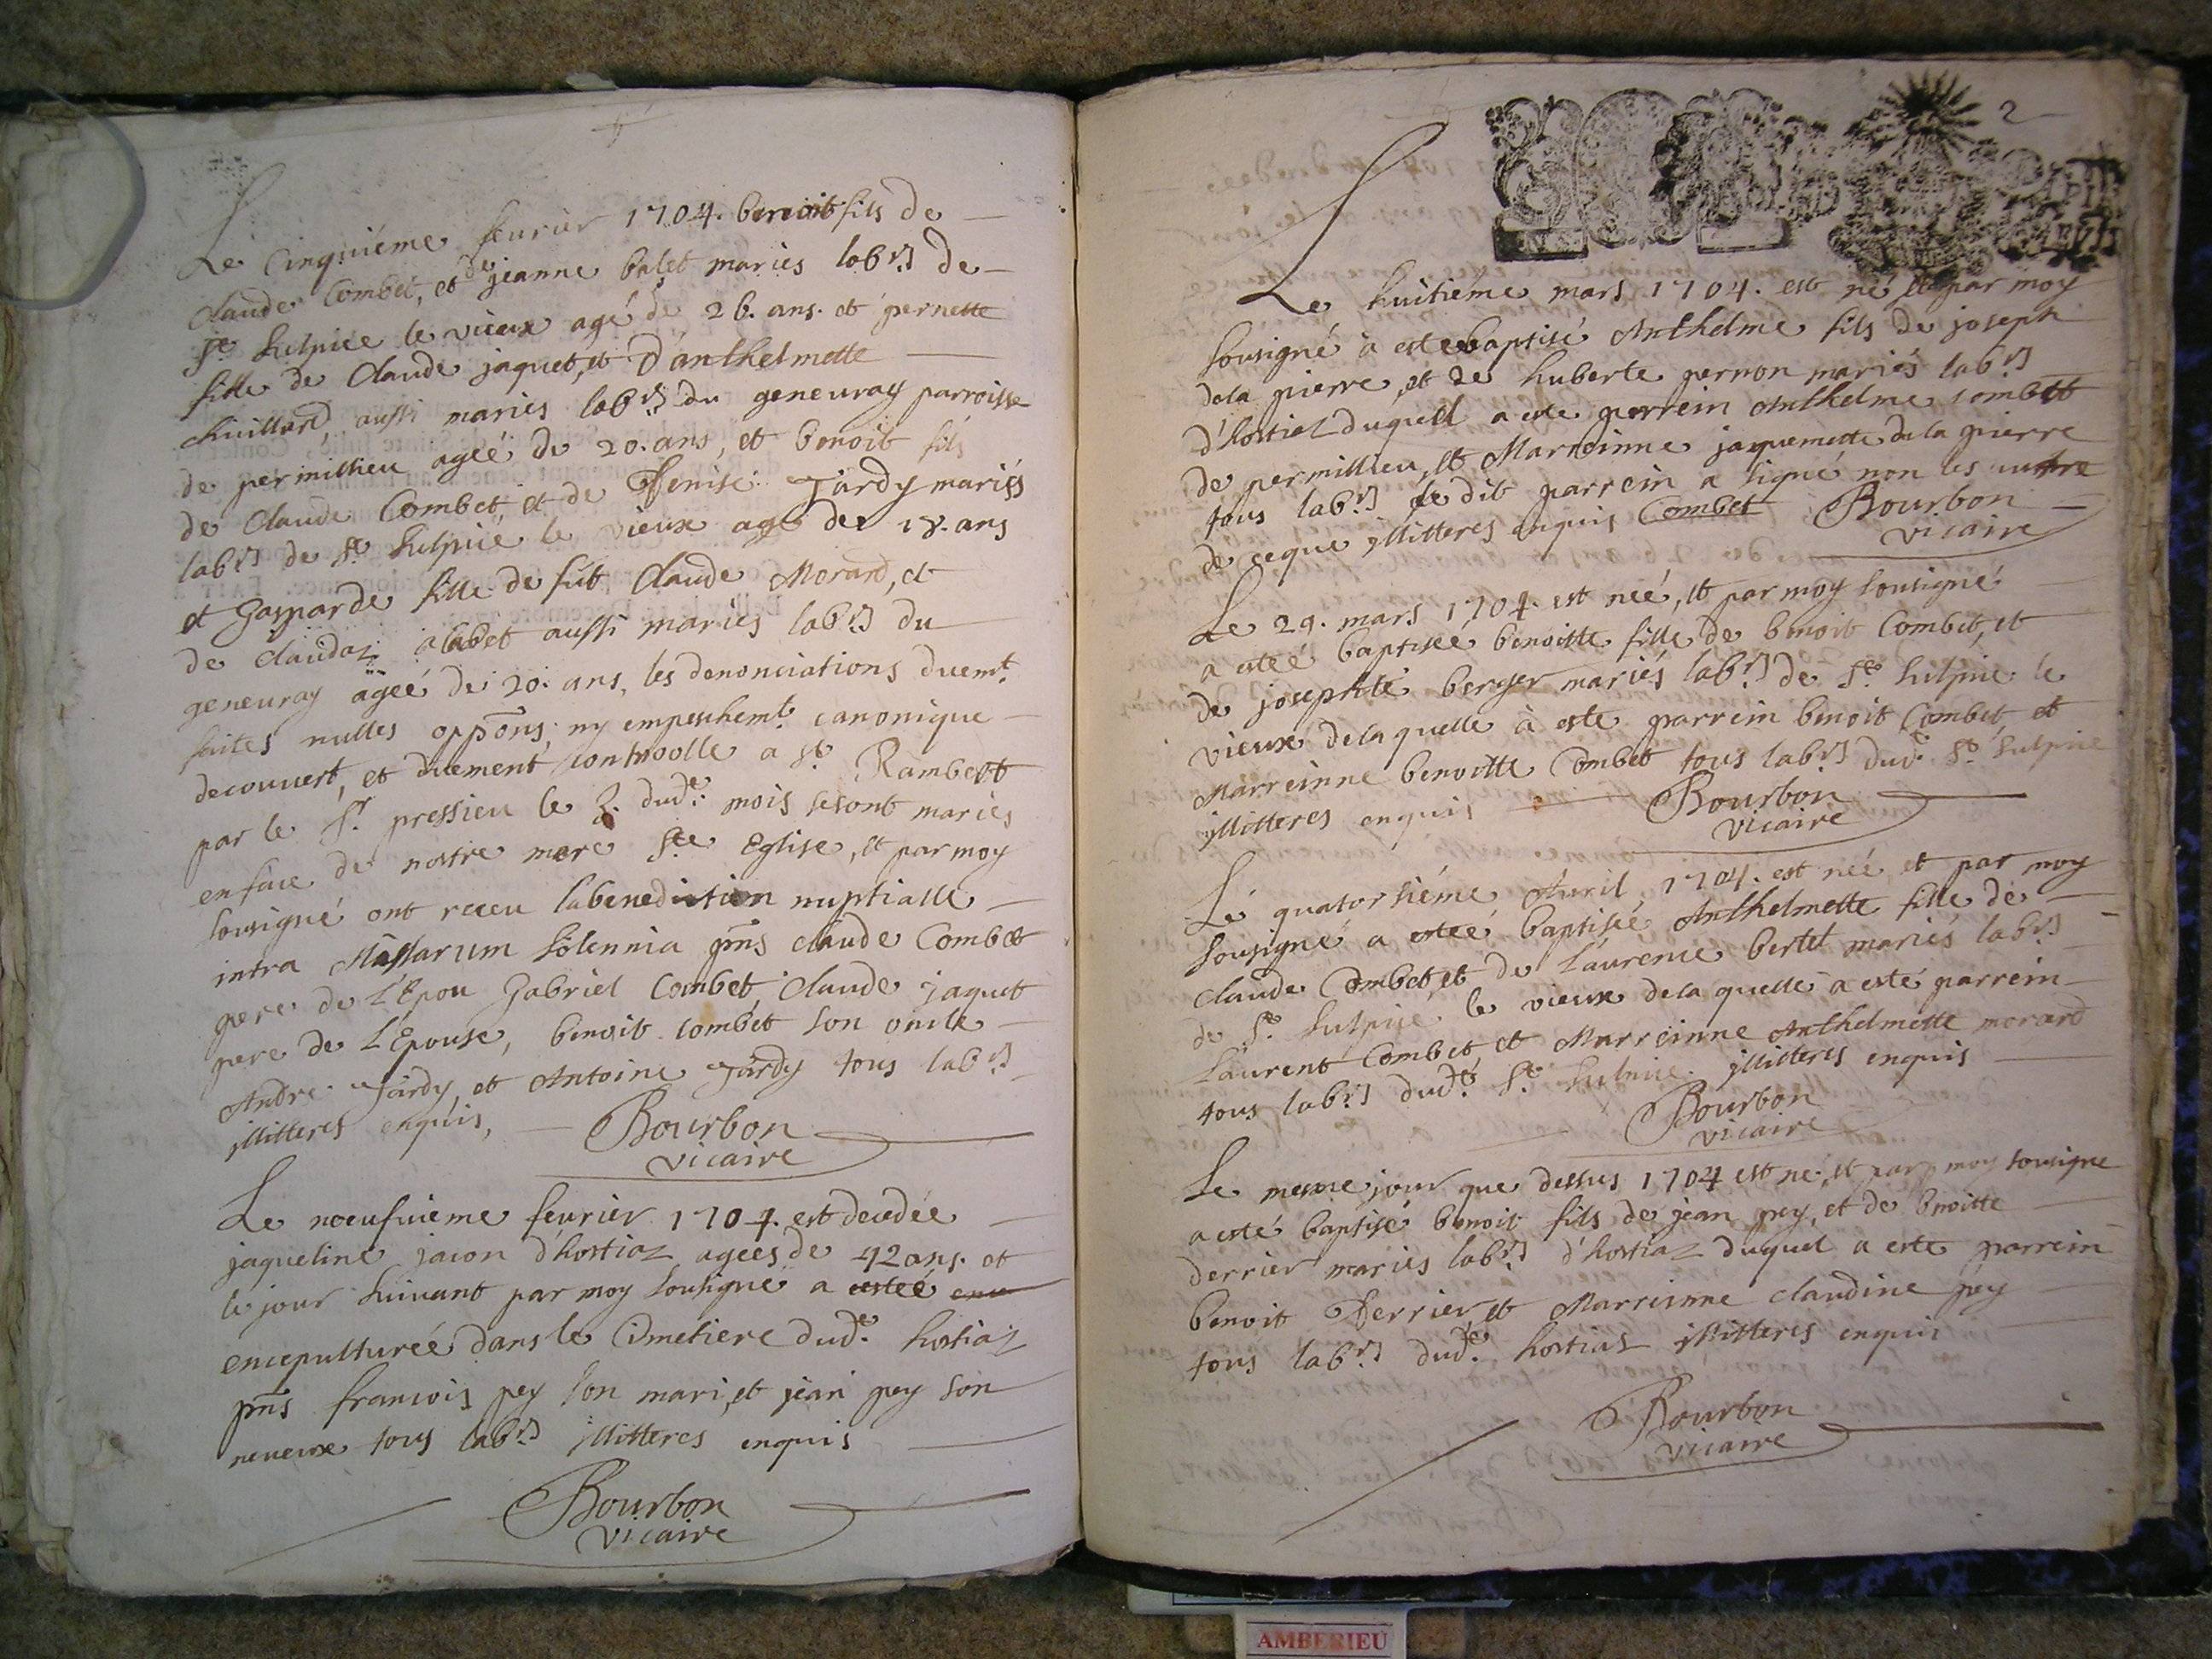 Le Cinquiéme feurier 1704. benoit fils de
claude Combet, et de jeanne balet mariés labrs de
st sulpice le vieux agé de 26. ans. et pernette
fille de Claude jaquet, et d'anthelmette
chuillard, aussi mariés labrs du geneuray parroisse
de permillieu ageé de 20. ans, et benoit fils
de Claude Combet, et de Denise Tardy mariés
labrs de st sulpice le vieux agé de 18. ans
et Gasparde fille de fût Claude Morard, et
de claudaz alabet aussi mariés labrs du
geneuray ageé de 20. ans, les denonciations duemt
faites nulles opp̄ons, ny empeschemt canonique
decouuert, et duement controolle a st Rambert
par le sr pressieu le 3. dude mois se sont mariés
enface de nostre mere ste Eglise, et par moy
sousigné ont receu labenediction nuptialle
intra Missarum solennia pn̄s claude Combet
pere de L'Epou Gabriel Combet, Claude jaquet
pere de L'Epouse, benoit combet son oncle
Andre Tardy, et Antoine Tardy tous labrs
illitteres enquis, Bourbon
vicaire
Le noeufuieme feurier 1704. est decedée
jaqueline jacon d'hostiaz agees de 42 ans. et
le jour suiuant par moy sousigné a esteé
encepulturée dans le Cimetiere dude hostiaz
pn̄s francois pey son mari, et jean pey son
neueux tous labrs illitteres enquis
Bourbon
vicaire
2
Le huitiéme mars 1704. est né, et par moy
sousigné à este baptisé Anthelme fils de joseph
dela pierre, et de huberte pernon mariés labrs
d'hostiaz duquell a este parrein Anthelme combett
de permillieu, et Marreinne jaquemette dela pierre
tous labrs le dit parrein a signé non les autre
de ceque illitteres enquis Combet Bourbon
vicaire
Le 29. mars 1704. est neé, et par moy sousigné
a esteé baptiseé benoitte fille de benoit Combet, et
de josephte berger mariés labrs de st sulpice le
vieux dela quelle à este parrein benoit Combet, et
Marreinne benoitte Combet tous labrs dude st sulpice
illitteres enquis Bourbon
vicaire
Le quatorsiéme Auril 1704. est neé et par moy
sousigné a esteé baptisée Anthelmette fille de
claude Combet, et de Laurence bertet mariés labrs
de st sulpice le vieux dela quelle a esté parrein
Laurent Combet, et Marreinne Anthelmette morard
tous labrs dude st sulpice illitteres enquis
Bourbon
vicaire
Le mesme jour que dessus 1704 est né, et par moy sousigne
a esté baptisé benoit fils de jean pey, et de benoitte
derrier mariés labrs d'hostiaz duquel a este parrein
benoit Derrier, et Marreinne claudine pey
tous labrs dude hostiaz illitteres enquis
Bourbon
vicaire
AMBERIEU